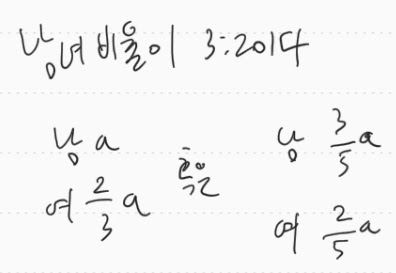 남녀비율이 3:2이다
남 a
여 2/3 a
혹은
남 3/5 a
여 2/5 a